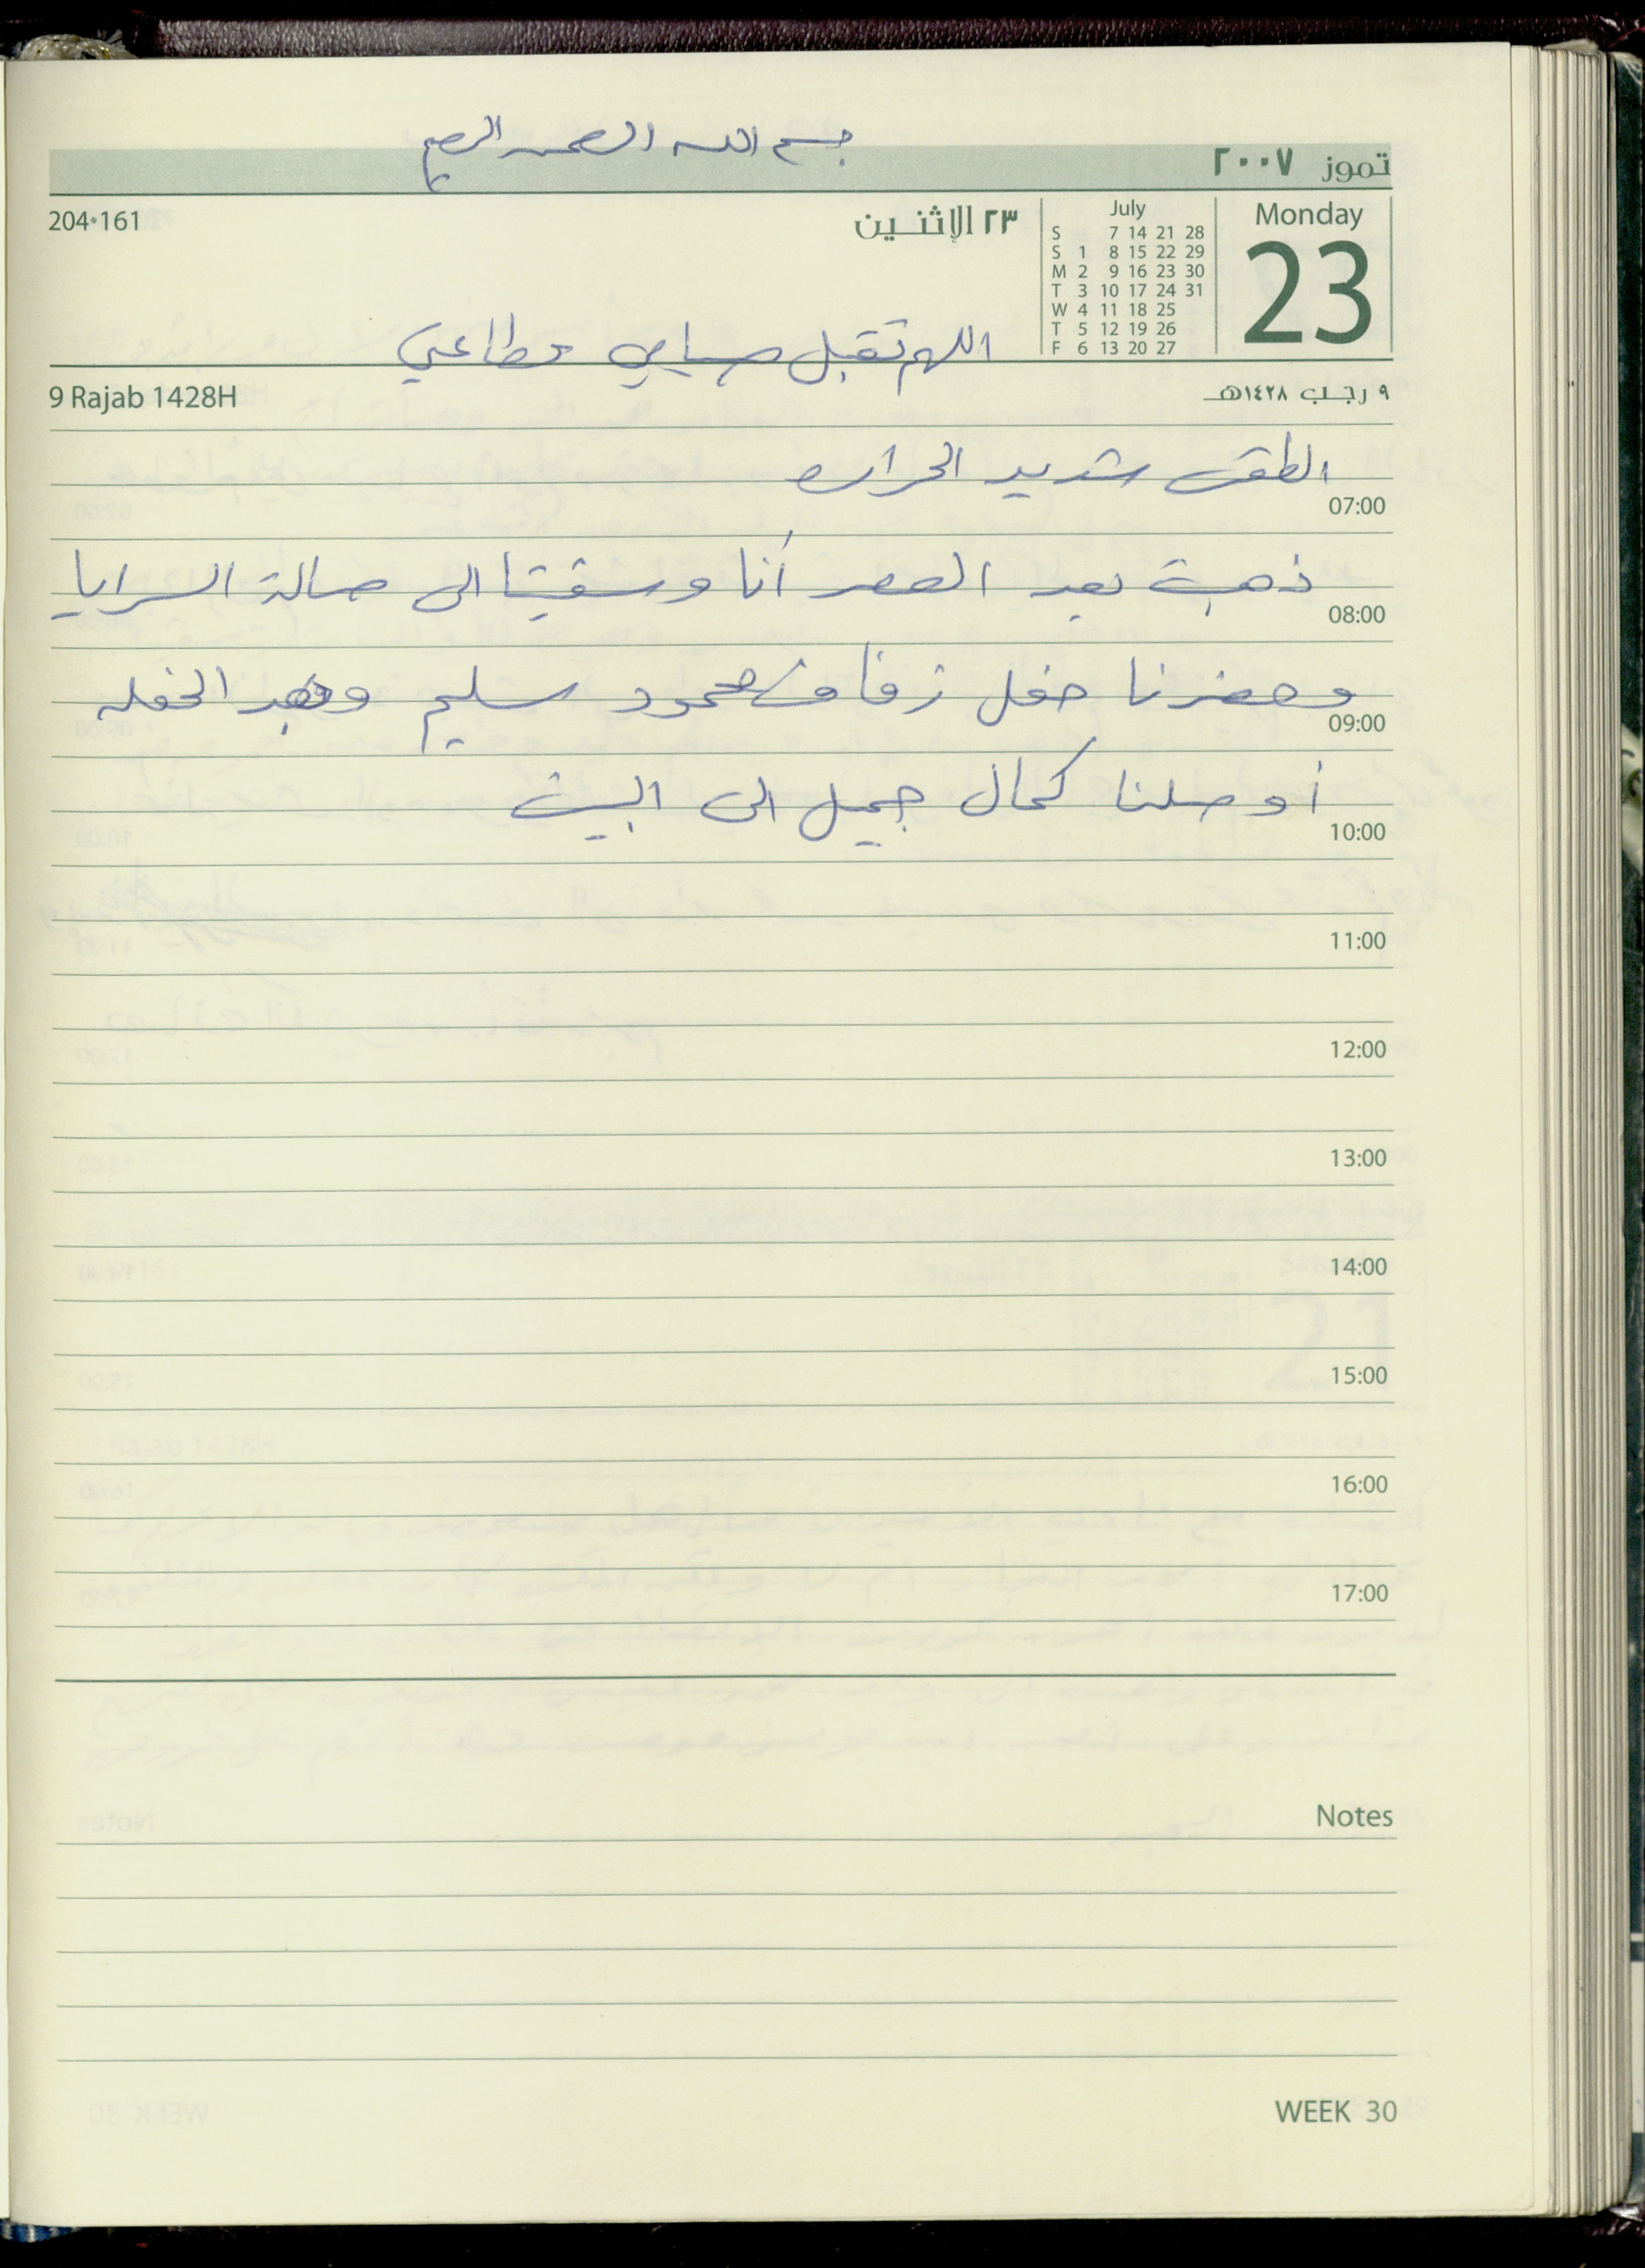 بسم الله الرحمن الرحيم
تموز ٢٠٠٧
Monday
23
July
S 7 14 21 28
S 1 8 15 22 29
M 2 9 16 23 30
T 3 10 17 24 31
W 4 11 18 25
T 5 12 19 26
F 6 13 20 27
٢٣ الإثنين
204•161
اللهم تقبل صيامي وطاعتي
٩ رجب ١٤٢٨هـ
9 Rajab 1428H
الطقس شديد الحرارة
07:00
ذهبت بعد العصر أنا وشقيقنا الى صالة السرايا
08:00
وحضرنا حفل زفاف محمود سليم وبعد الحفله
09:00
أوصلنا كمال جميل الى البيت
10:00
11:00
12:00
13:00
14:00
15:00
16:00
17:00
Notes
WEEK 30